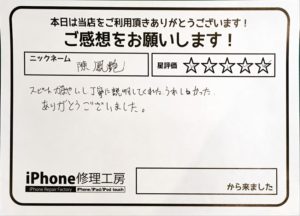 本日は当店をご利用頂きありがとうございます！
ご感想をお願いします！
ニックネーム
陳鳳艶
星評価 ☆☆☆☆☆
スピードが早いし丁寧に説明してくれた うれしかった
ありがとうございました。
iPhone修理工房
iPhone Repair Factory iPhone/iPad/iPod touch
から来ました